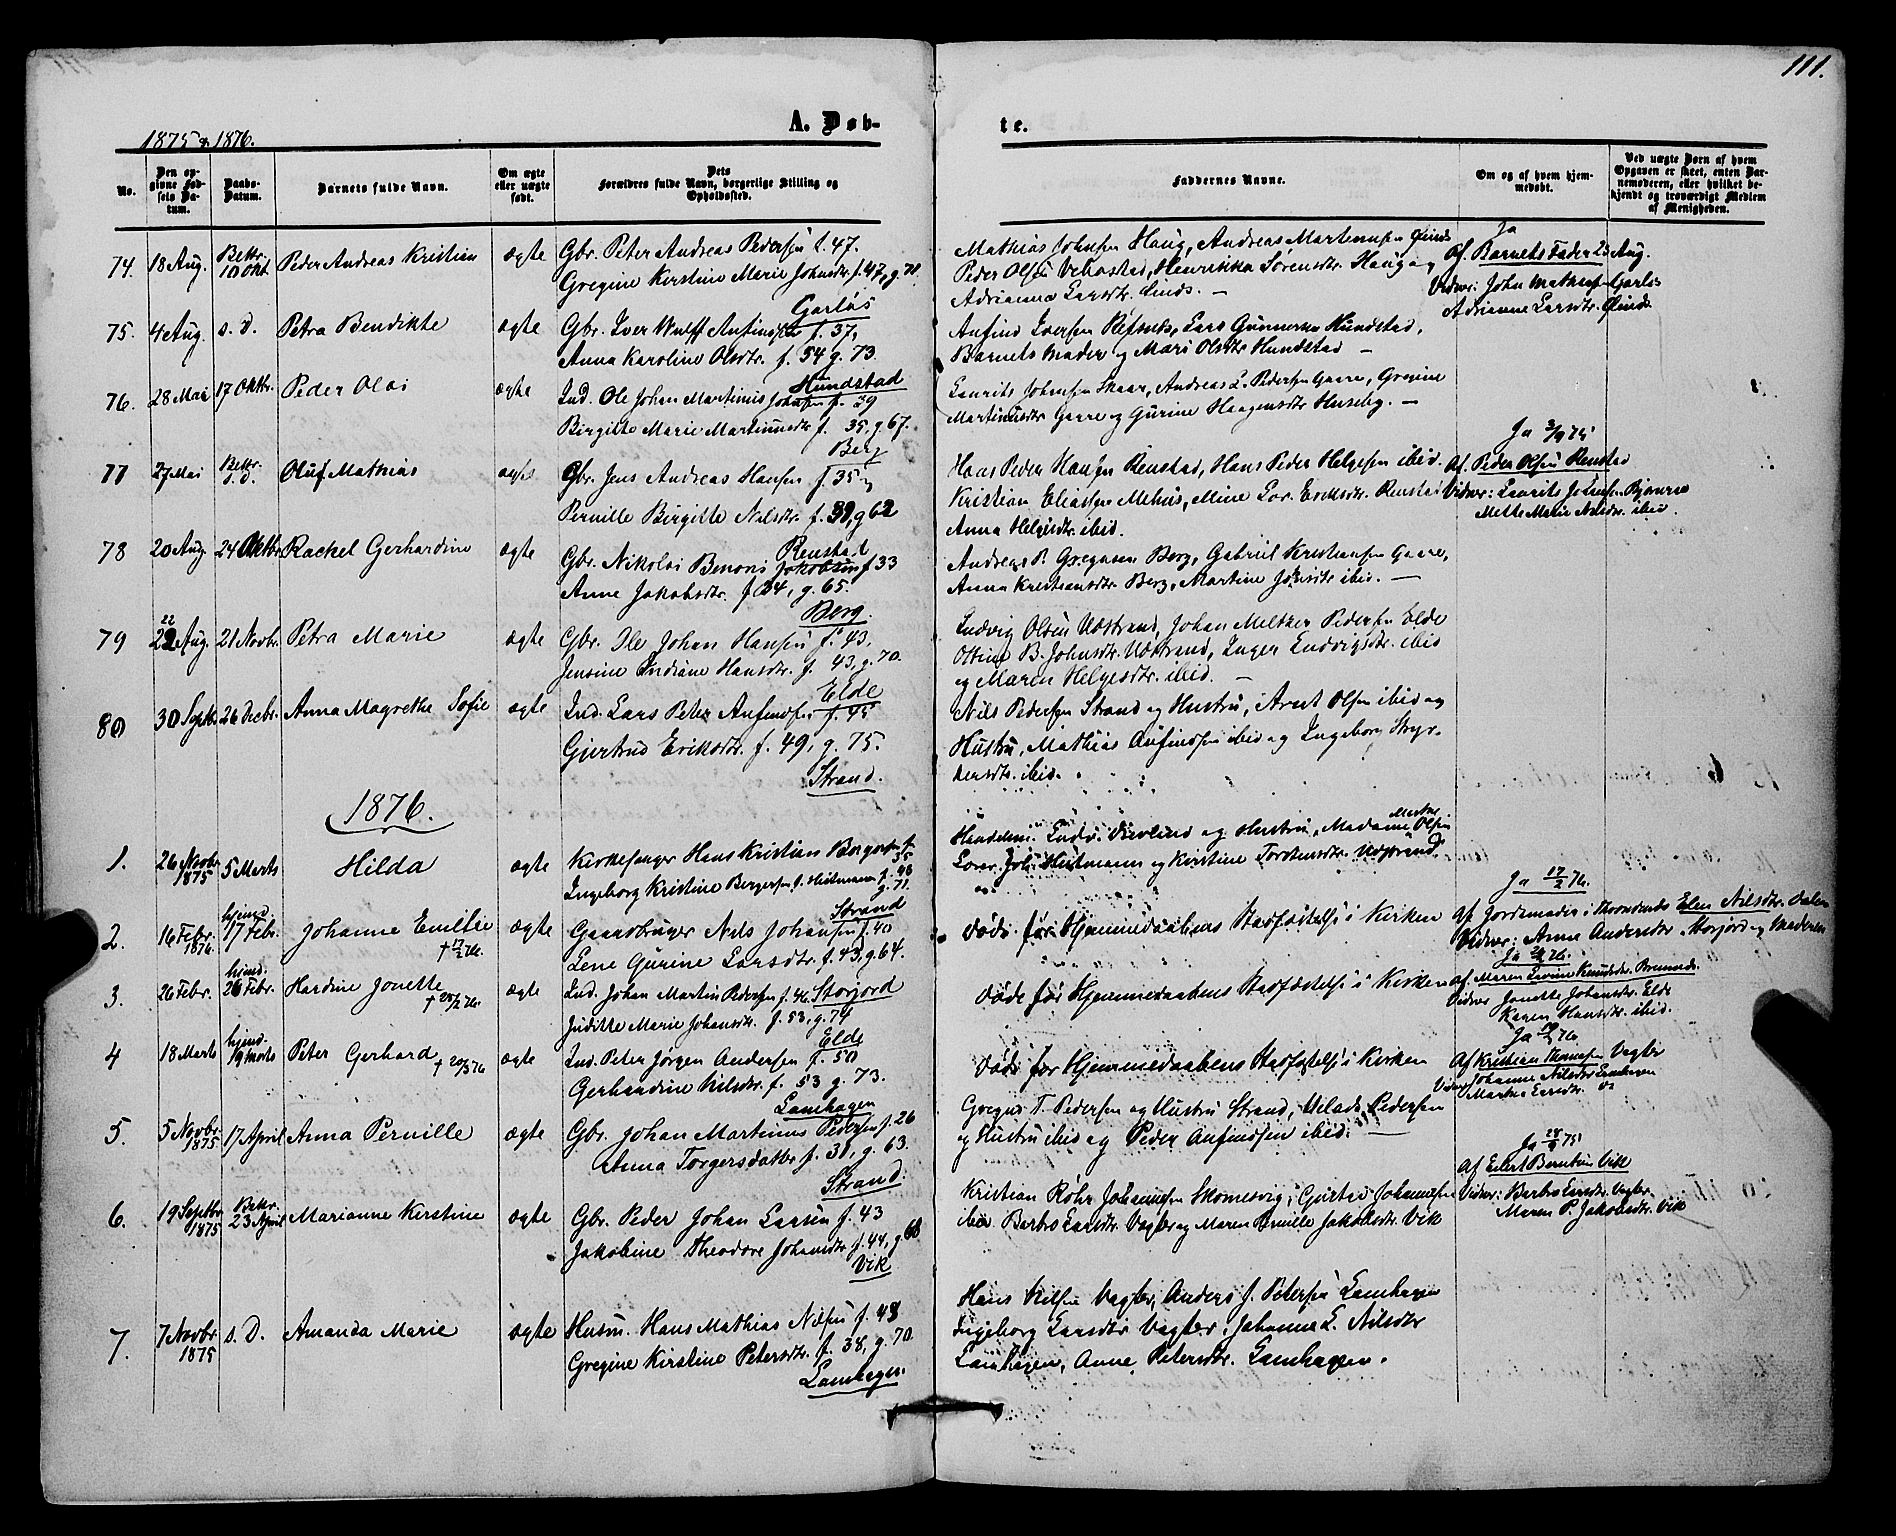 111.
1875 & 1876.
A. Døb-
te.
No.
Den op-
givne Fød-
sels Da-
tum.
Daabs-
Datum.
Barnets fulde Navn.
Om ægte
eller uægte
født.
Dets
Forældres fulde Navn, borgerlige Stilling og
Opholdssted.
Faddernes Navne.
Om og af hvem hjem-
medøbt.
Ved uægte Børn af hvem
Opgaven er skeet, enten Bar-
nemoderen, eller hvilket be-
kjendt og troværdigt Medlem
af Menigheden.
74. 18 Aug. Bekr. 10 Okt. Peder Andreas Kristian ægte Gbr. Peter Andreas Pedersen f. 47.
Gregine Kerstine Marie Johnsdtr. f. 47, g. 70.
Garlos
Mathias Johnsen Haug, Andreas Martinusen
Peder Olsen Vebostad, Henrikka Sørensdtr. Haug og
Adrianna Larsdtr. —
Ja
Af Barnets Fader 23 Aug.
Vidner: John Mathisen Garlos
Adrianna Larsdtr.
75. 4e Aug. s. D. Petra Bendikte ægte Gbr. Iver Wulff Anfinsen f. 37,
Anna Karoline Olsdtr. f. 54 g. 73.
Hundstad
Anfind Iversen Refsnes, Lars Gunnersen Hundstad,
Barnets Moder og Mari Olsdtr Hundstad —
76. 28 Mai 17 Oktbr. Peder Olai ægte Ind. Ole Johan Martinus Johnsen f. 39
Birgitte Marie Martinusdtr f. 35, g. 67.
Berg
Laurits Johnsen Skaar, Andreas L. Pedersen Gaare, Gregine
Martinusdtr Gaare og Gurine Haagensdtr Huseby. —
77 27 Mai Bekr. s. D. Oluf Mathias ægte Gbr. Jens Andreas Hansen f. 35 og
Pernille Birgitte Nilsdtr. f. 39, g 62
Renstad
Hans Peder Hansen Renstad, Hans Peder Helgesen ibid.
Kristian Eliassen Mehus, Mine Lov. Eriksdtr. Renstad
Anna Helgesdtr. ibid.
Ja 3/9 75
Af Peder Olsen Renstad
Vidner: Laurits J. Larsen
Mette Marie Nilsdtr. ibid.
78 20 Aug. 24 Oktbr Rachel Gerhardine ægte Gbr. Nikolai Benoni Jakobsen f 33
Anne Jakobsdtr. f 34, g. 65.
Berg.
Andreas P. Gregusen Berg, Gabriel Kristiansen Gaare,
Anna Kristiansdtr Berg, Martine ibid. —
79 22 Aug. 21 Novbr. Petra Marie ægte Gbr. Ole Johan Hansen f. 43,
Jensine Indiane Hansdtr. f. 43, g. 70.
Elde
Ludvig Olsen Udstrand, Johan Meltzer Pedersen Elde
Ottine B. Johnsdtr. Udstrand, Inger Ludvigsdtr. ibid
og Maren Helgesdtr. ibid. —
80 30 Septbr. 26 Decbr. Anna Magrethe Sofie ægte Ind. Lars Peter Anfindsen f. 45
Gjertrud Eriksdtr. f. 49, g. 75.
Strand.
Nils Pedersen Strand og Hustru, Arnt Olsen ibid og
Hustru, Mathias Anfindsen ibid og Ingeborg Styr-
kersdtr. ibid.
1876.
1. 26 Novbr 1875 5 Marts Hilda ægte Kirkesanger Hans Kristian Borgersen f. 35
Ingeborg Kristine Bergersen f. Heitmann f. 46
g. 71.
Strand
Handelsm. og Hustru, Madame Olsen
Heitmann og Kirstine Torstensdtr. Udstrand
2. 16 Febr. 1876. hjmd. 17 Febr. Johanne Emilie † 17/2 76. ægte Gaardbruger Nils Johansen f. 40
Lene Gurine Larsdtr. f. 43, g. 64.
Storjord
Døde før Hjemmedaabens Stadfæstelse i Kirken
Ja 17/2 76.
Af Jordemoder i Throndenes Elen Nilsdtr.
Vidner: Anne Andersdtr Storjord og Moderen
3. 26 Febr. hjmd. 26 Febr. Hardine Jonette † 28/2 76. ægte Ind. Johan Martin Pedersen f. 46.
Juditte Marie Johansdtr. f. 53, g. 74
Elde
Døde før Hjemmedaabens Stadfæstelse i Kirken
Af Maren Lovise Knudsdtr.
Vidner Jonette Johansdtr. Elde
Karen Hansdtr. ibid.
4 18 Marts hjmd. 19 Marts Peter Gerhard † 20/3 76 ægte Ind. Peter Jørgen Andersen f. 50
Gerhardine Nilsdtr. f. 53 g. 73.
Lamhagen
Døde før Hjemmedaabens Stadfæstelse i Kirken
Ja 19/3 76
Af Kristian Thomesen Vagter
Vidner Johanna Nilsdtr Lamhagen
Martha Larsdtr. do
5. 5 Novbr. 1875 17 April Anna Pernille ægte Gbr. Johan Martinus Pedersen f. 26
Anna Torgersdatter f. 31, g. 63.
Strand.
Gregus T. Pedersen og Hustru Strand, Pedersen
og Hustru ibid og Peder Anfindsen ibid. —
6. 19 Septbr 1875 Bekr. 23 April Marianne Kerstine ægte Gbr. Peder Johan Larsen f. 43
Jakobine Theodore Johansdtr f. 44, g 68
Vik
Kristian Rohr Johannesen Skomesvig, Gustav Johannesen
ibid. Barbro Larsdtr. Vagter og Maren Pernille Jakobsdtr. Vik
Af Eilert Berntsen Vik
Vidner: Barbro Larsdtr. Vagter.
Maren P. Jakobsdtr. Vik
7. 7 Novbr 1875 s. D. Amanda Marie ægte Husm. Hans Mathias Nilsen f. 48
Gregine Kirstine Petersdtr. f. 38, g. 70.
Lamhagen.
Hans Nilsen Vagter, Anders J. Petersen Lamhagen
Ingeborg Larsdtr Vagter, Johanna L. Nilsdtr
Lamhagen, Anne Petersdtr. Lamhagen.